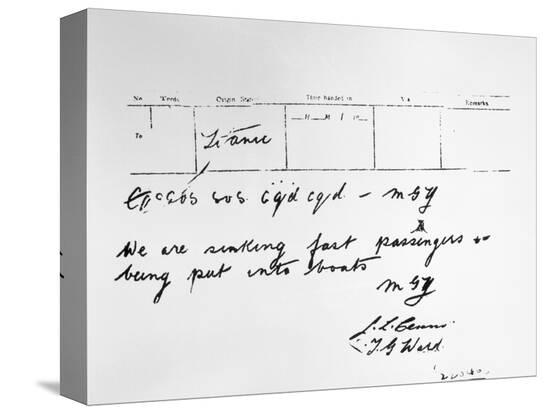 No. Words. Origin Station Time handed in Via Remarks
To
Titanic
SOS SOS cqd cqd - MGY
We are sinking fast passengers
being put into boats
MGY
T.G Ward